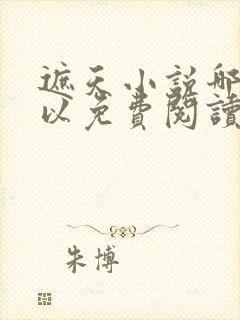 遮天小説哪
以免費閱讀
朱博